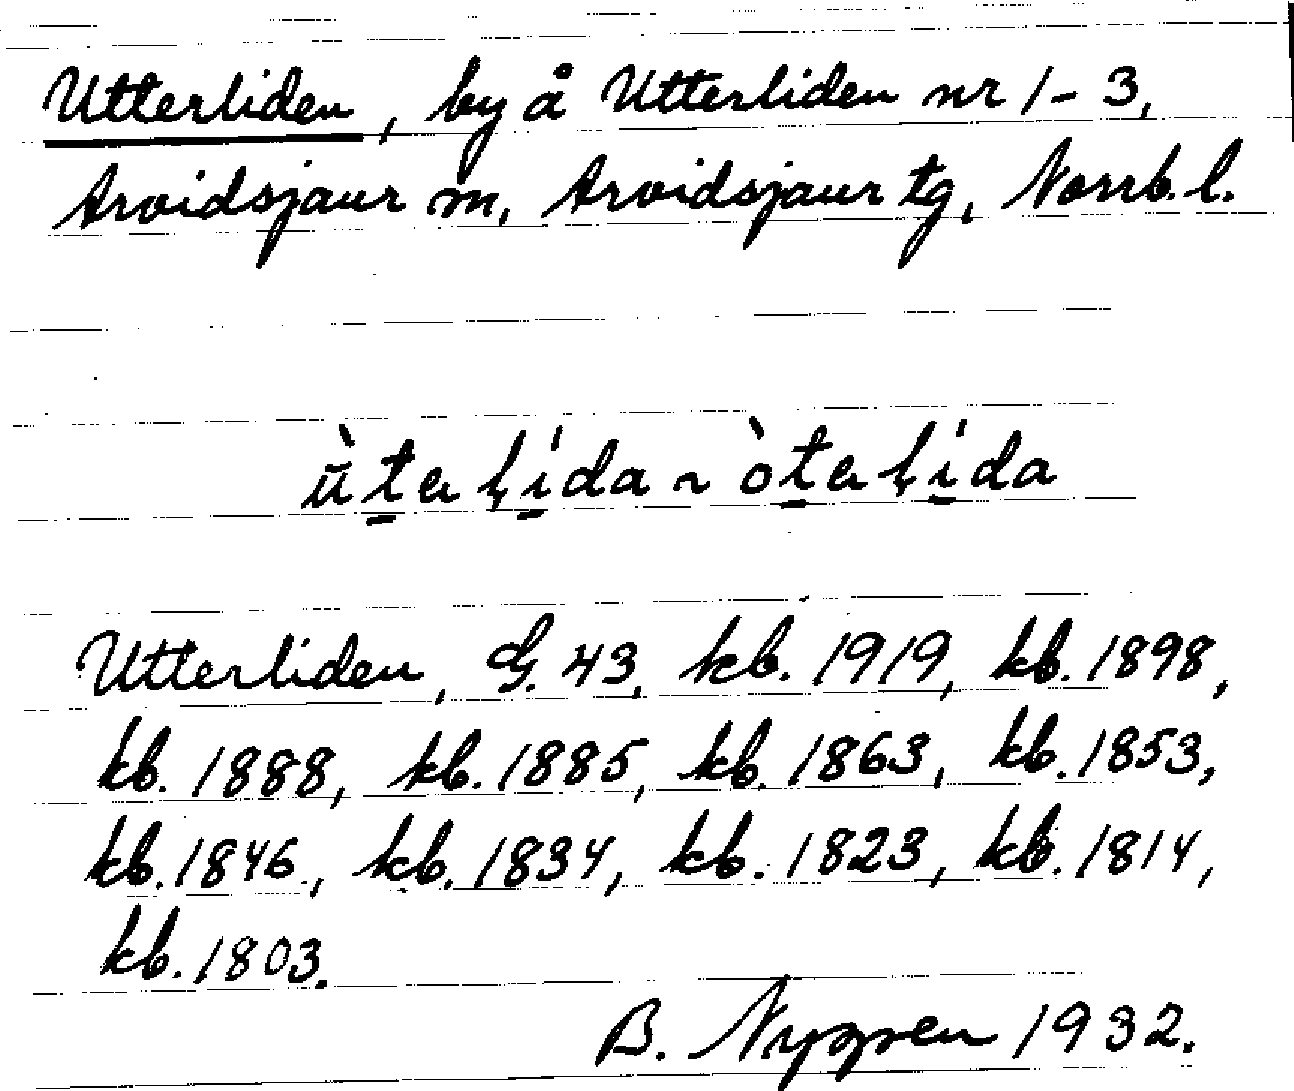 Utterliden, by å Utterliden nr 1-3,
Arvidsjaur sn, Arvidsjaur tg, Norrb. l.
Utterliden, G. 43, kb. 1919, kb. 1898,
kb. 1888, kb. 1885, kb. 1863, kb. 1853,
kb. 1846, kb. 1834, kb. 1823, kb. 1814,
kb. 1803.
B. Nygren 1932.